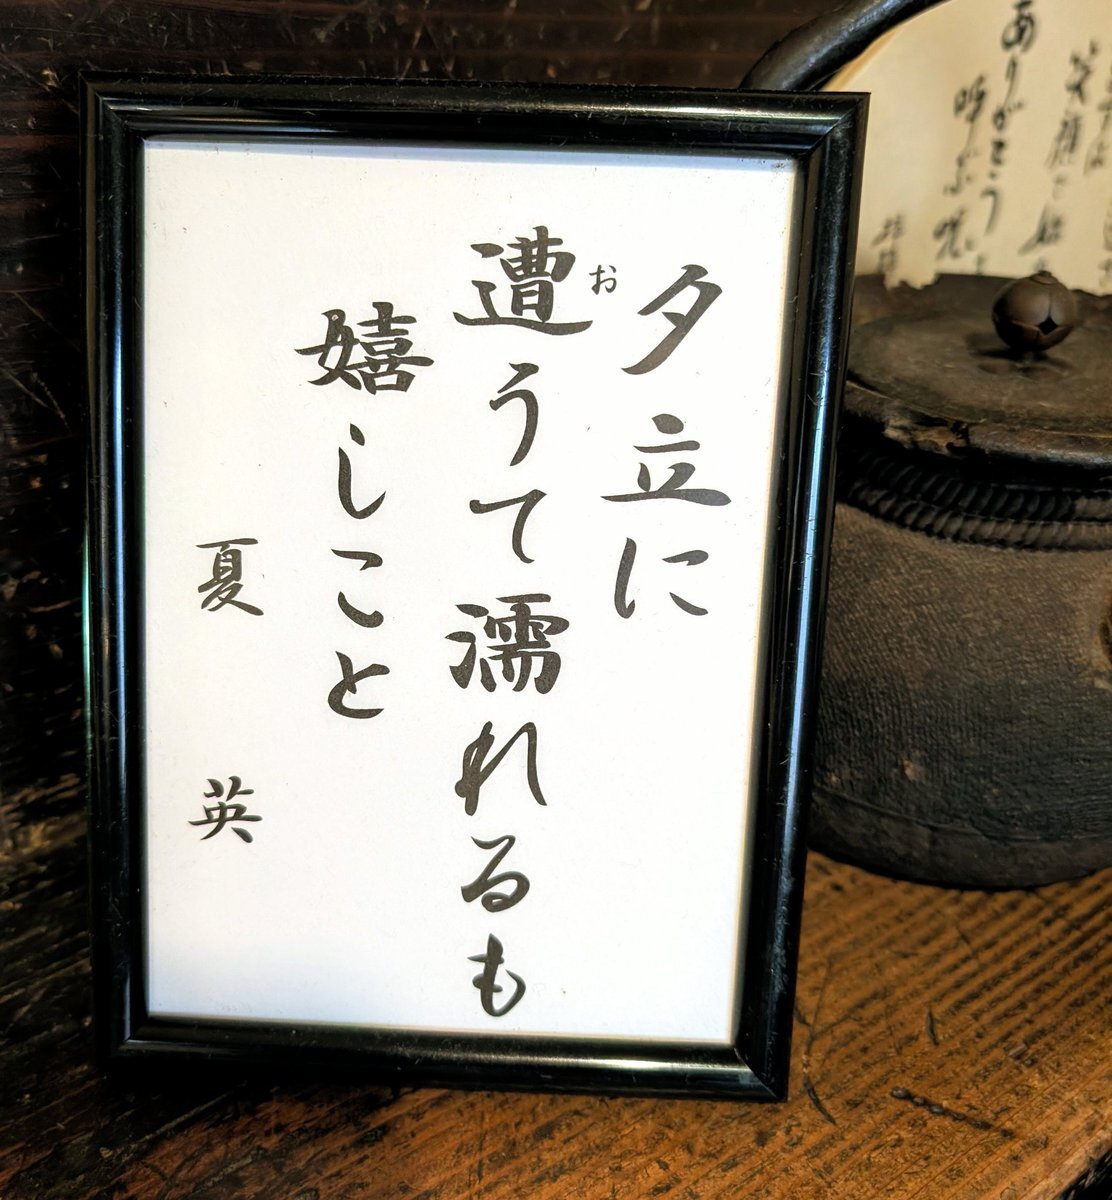 夕立に
遭うて濡れるも
お
嬉しこと
夏 英
ありがとう
呼ぶ